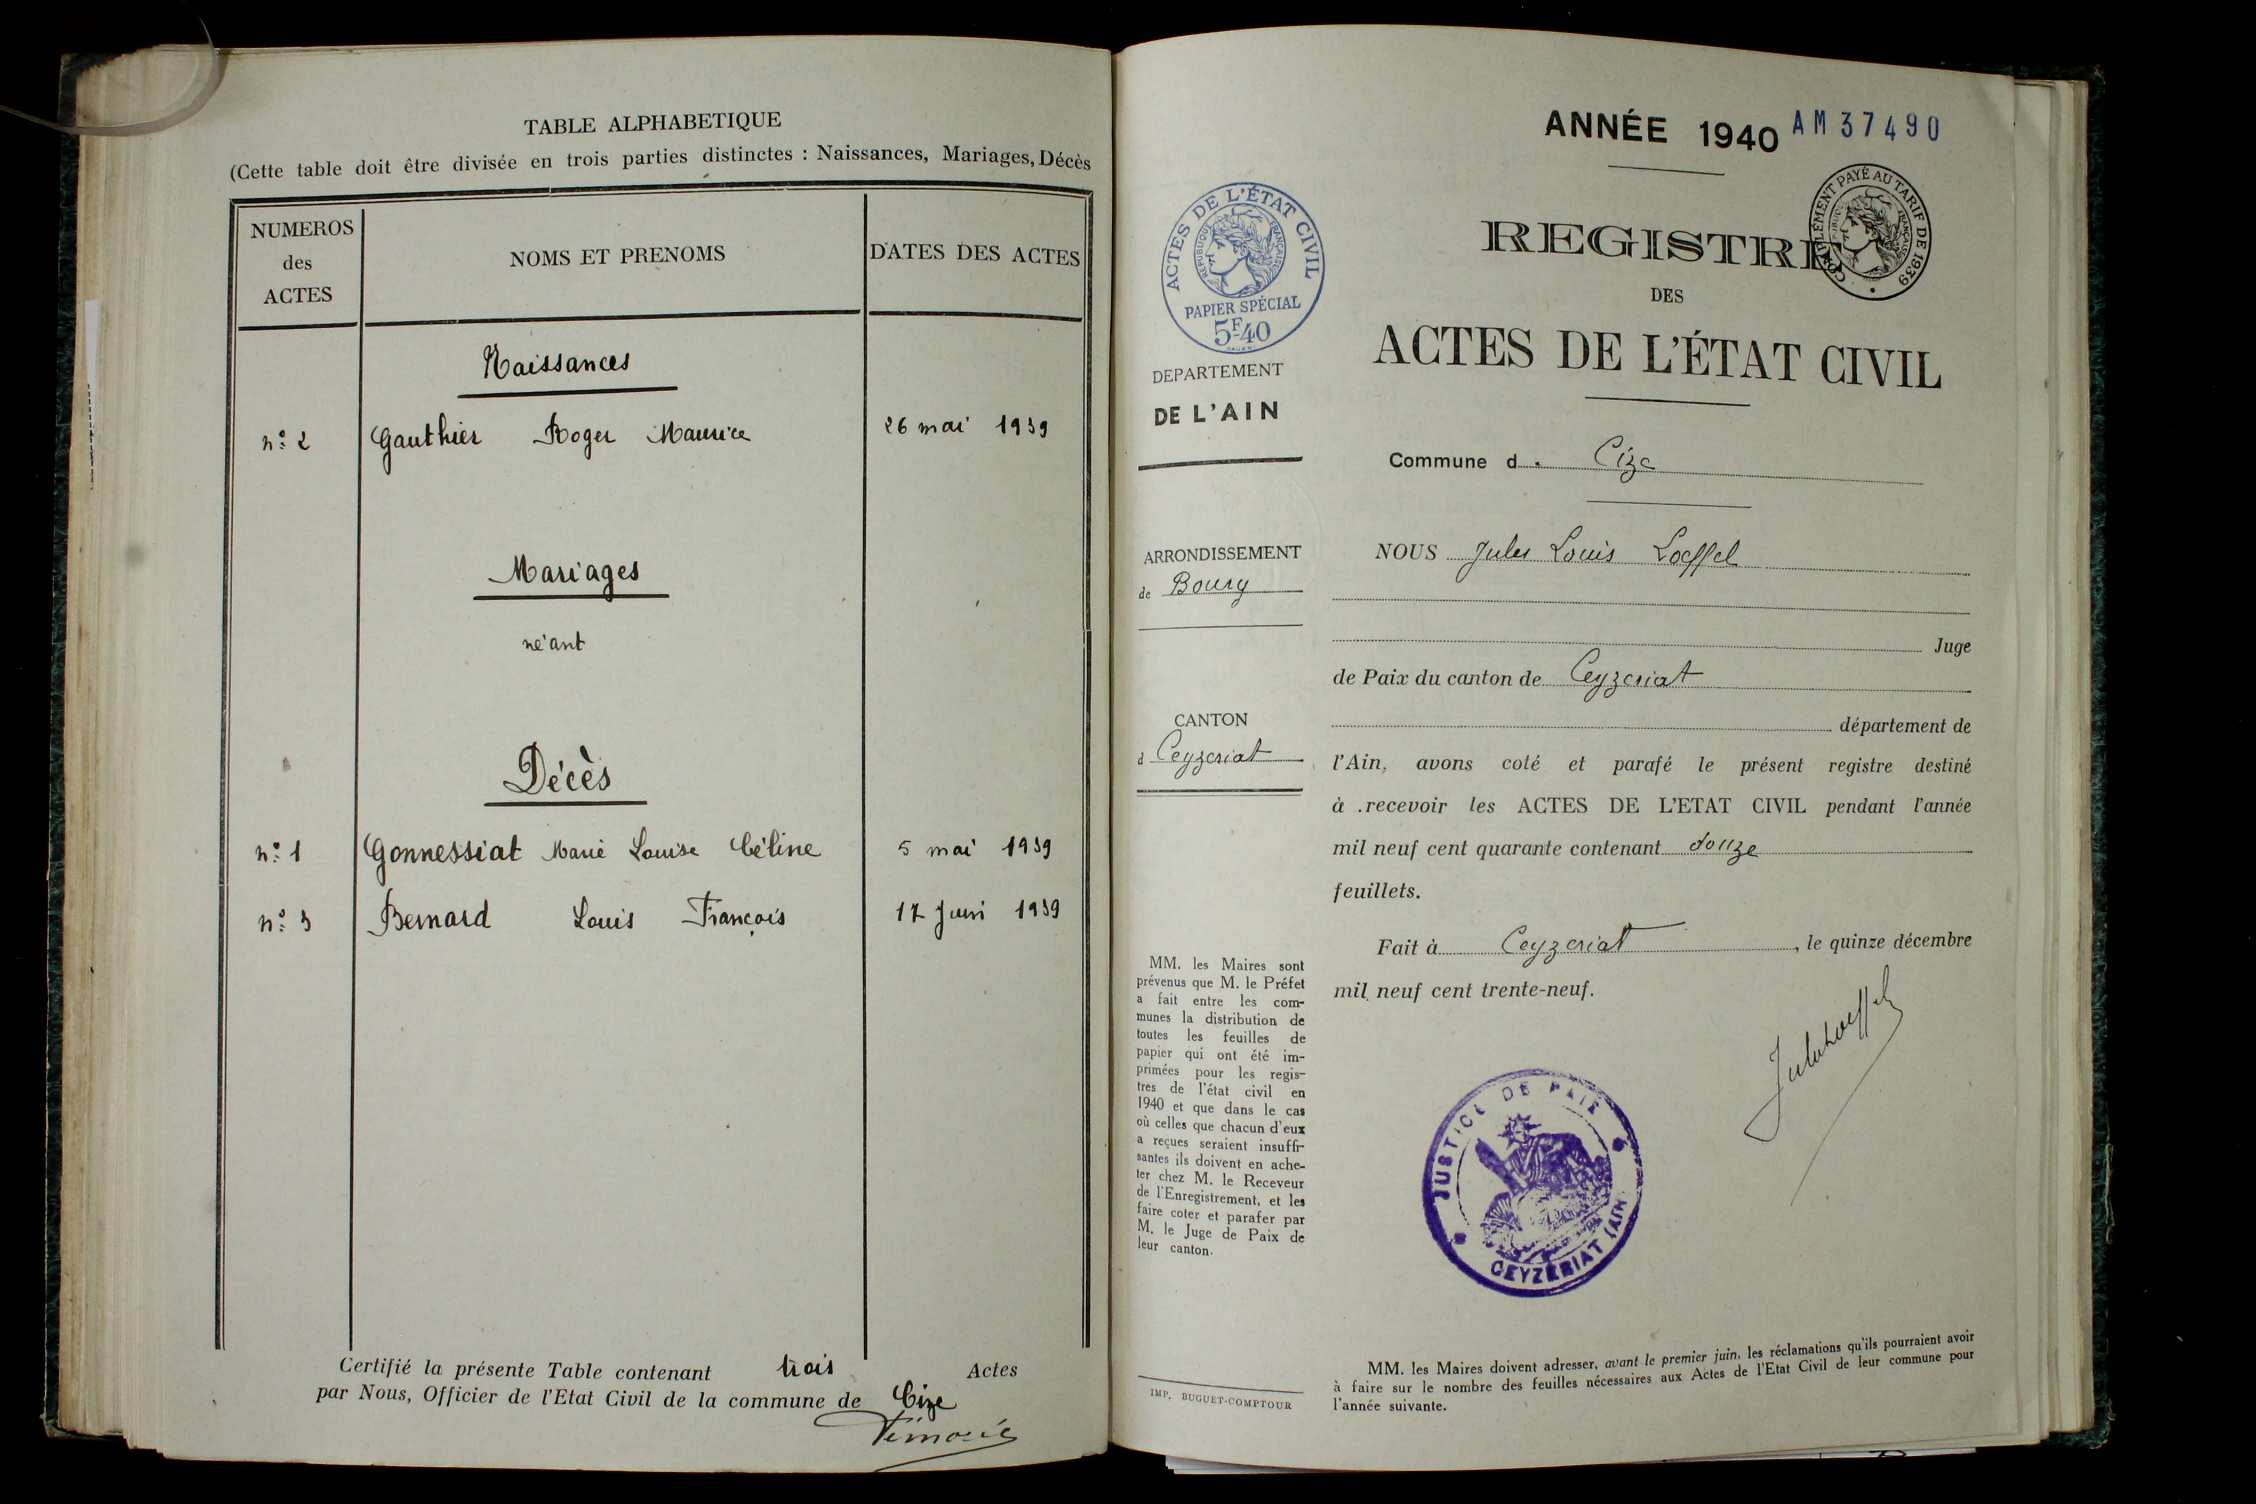 TABLE ALPHABETIQUE
(Cette table doit être divisée en trois parties distinctes : Naissances, Mariages, Décès
NUMEROS
des
ACTES
NOMS ET PRENOMS
DATES DES ACTES
Naissances
n° 2 Gauthier Roger Maurice 26 mai 1939
Mariages
néant
Décès
n° 1 Gonnessiat Marie Louise Céline 5 mai 1939
n° 3 Bernard Louis François 17 Juin 1939
Certifié la présente Table contenant trois Actes
par Nous, Officier de l'Etat Civil de la commune de Cize
ACTES DE L'ÉTAT CIVIL
RÉPUBLIQUE FRANÇAISE
PAPIER SPÉCIAL
5F.40
DEPARTEMENT
DE L'AIN
ARRONDISSEMENT
de Bourg
CANTON
d Ceyzeriat
MM. les Maires sont
prévenus que M. le Préfet
a fait entre les com-
munes la distribution de
toutes les feuilles de
papier qui ont été im-
primées pour les regis-
tres de l'état civil en
1940 et que dans le cas
où celles que chacun d'eux
a reçues seraient insuffi-
santes ils doivent en ache-
ter chez M. le Receveur
de l'Enregistrement, et les
faire coter et parafer par
M. le Juge de Paix de
leur canton.
IMP. BUGUET-COMPTOUR
ANNÉE 1940 AM 37490
COMPLÉMENT PAYÉ AU TARIF DE 1939
REGISTRE
DES
ACTES DE L'ÉTAT CIVIL
Commune d Cize
NOUS Jules Louis Loeffel
Juge
de Paix du canton de Ceyzeriat
département de
l'Ain, avons coté et parafé le présent registre destiné
à recevoir les ACTES DE L'ETAT CIVIL pendant l'année
mil neuf cent quarante contenant douze
feuillets.
Fait à Ceyzeriat, le quinze décembre
mil neuf cent trente-neuf.
Jules Loeffel
JUSTICE DE PAIX
CEYZÉRIAT (AIN)
MM. les Maires doivent adresser, avant le premier juin, les réclamations qu'ils pourraient avoir
à faire sur le nombre des feuilles nécessaires aux Actes de l'Etat Civil de leur commune pour
l'année suivante.